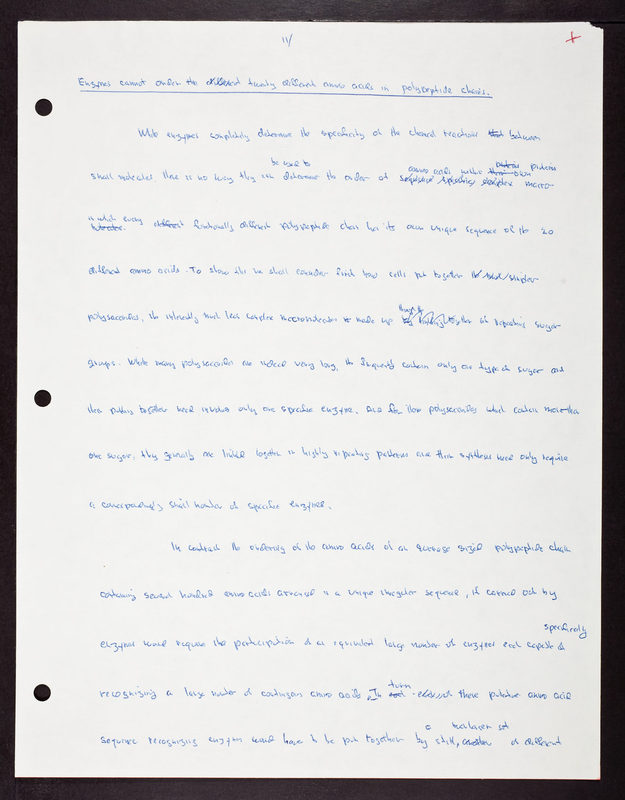 11/
Enzymes cannot order the different twenty different amino acids in polypeptide chains.
While enzymes completely determine the specificity of the chemical reactions that between
be used to amino acids within protein
small molecules there is no way they can determine the order of sequence specificity complex macro-
in which every different functionally different polypeptide chain has its own unique sequence of the 20
different amino acids. To show this we shall consider first how cells put together the simpler
polysaccharides, the inherently much less complex macromolecules made up together of repeating sugar
groups. While many polysaccharides are indeed very long, they frequently contain only one type of sugar and
their putting together need involve only one specific enzyme. And for those polysaccharides which contain more than
one sugar, they generally are linked together in highly repeating patterns and their synthesis need only require
a correspondingly small number of specific enzymes.
In contrast the ordering of the amino acids of an average sized polypeptide chain
containing several hundred amino acids arranged in a unique irregular sequence, if carried out by
specifically
enzymes would require the participation of an equivalent large number of enzymes each capable of
recognizing a large number of contiguous amino acids. In turn each of these putative amino acid
a much larger set
sequence recognizing enzymes would have to be put together by still, another of different